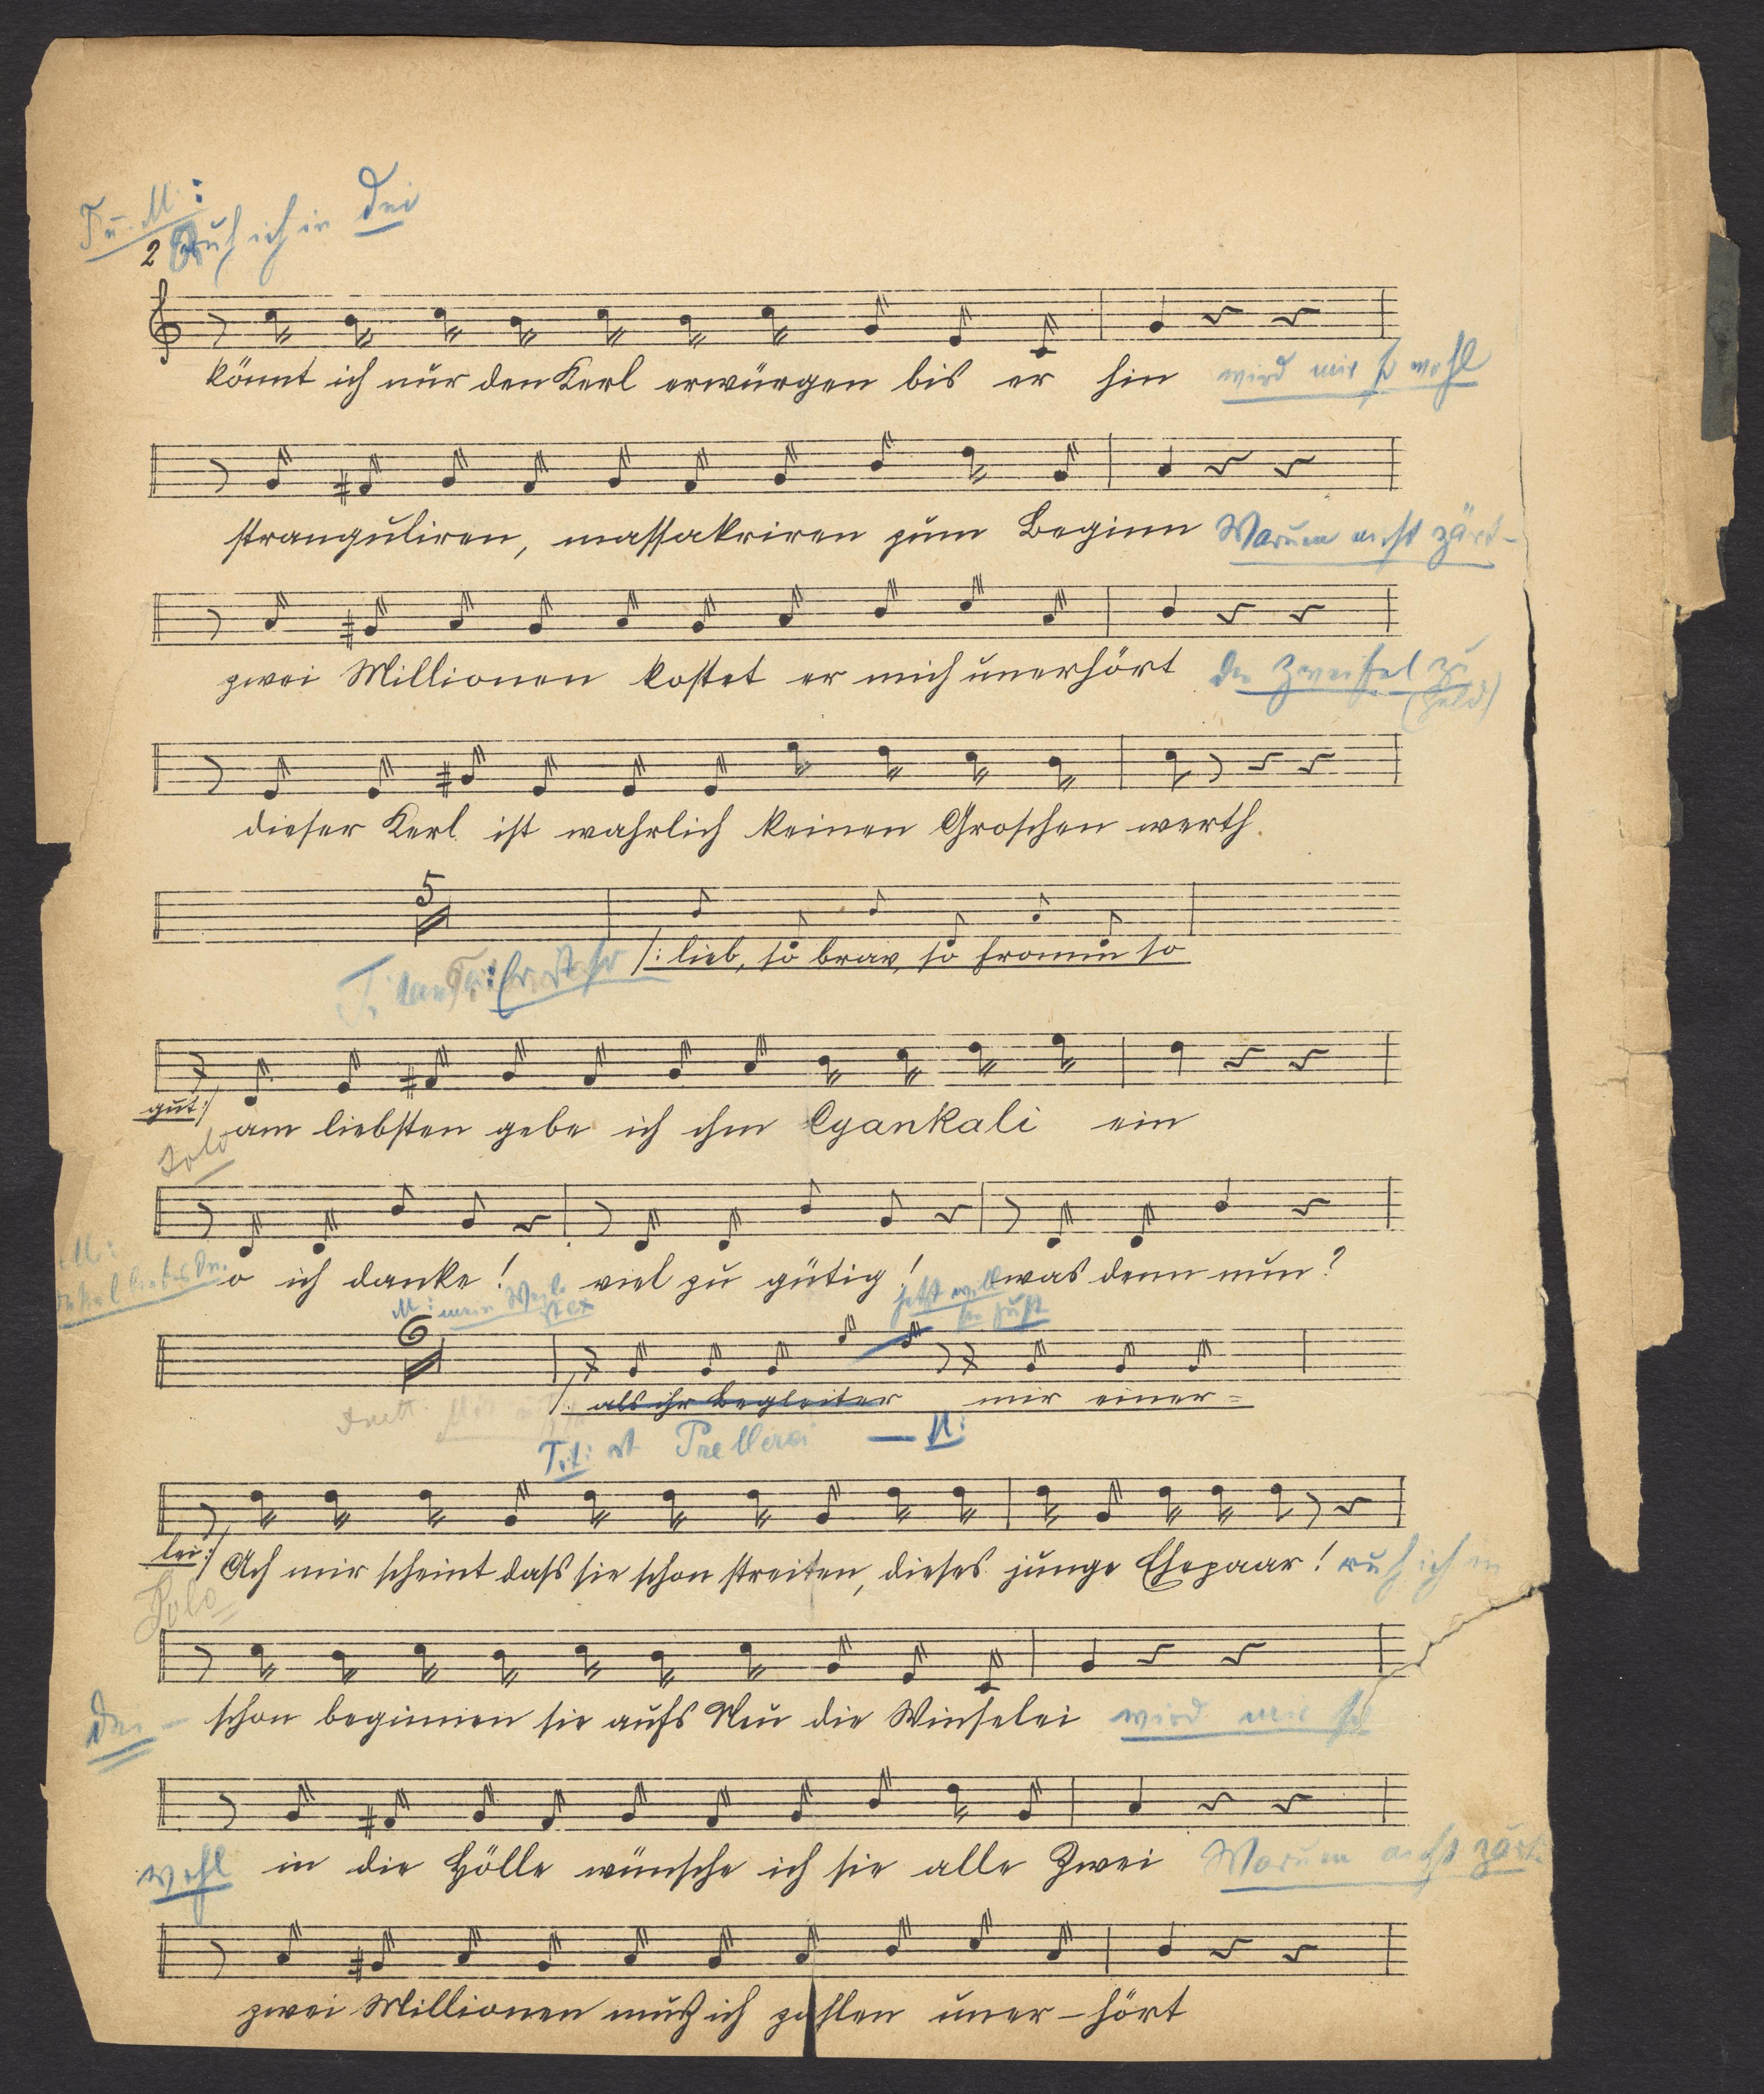 F u. M:
2 Ruh ich in Dei
könnt ich nur den Kerl erwürgen bis er hin wird mir so wohl
stranguliren, massakriren zum Beginn Warum nicht zärt-
zwei Millionen kostet er mich unerhört der Zweifel zu
(Held)
dieser Kerl ist wahrlich keinen Groschen werth.
5
/: lieb, so brav, so fromm so
gut :/ am liebsten gebe ich ihm Cyankali ein
Solo
M:
o ich danke! viel zu gütig! was denn nun?
M: mein jetzt will
6
/: als ihr Begleiter mir einer=
Tit: ist Prellerei — M:
lei :/ Ach mir scheint dass sie schon streiten, dieses junge Ehepaar! ruh ich in
Solo
Dei- schon beginnen sie aufs Neu die Winselei wird mir so
wohl in die Hölle wünsche ich sie alle Zwei Warum nicht zärt-
zwei Millionen muß ich zahlen uner-hört